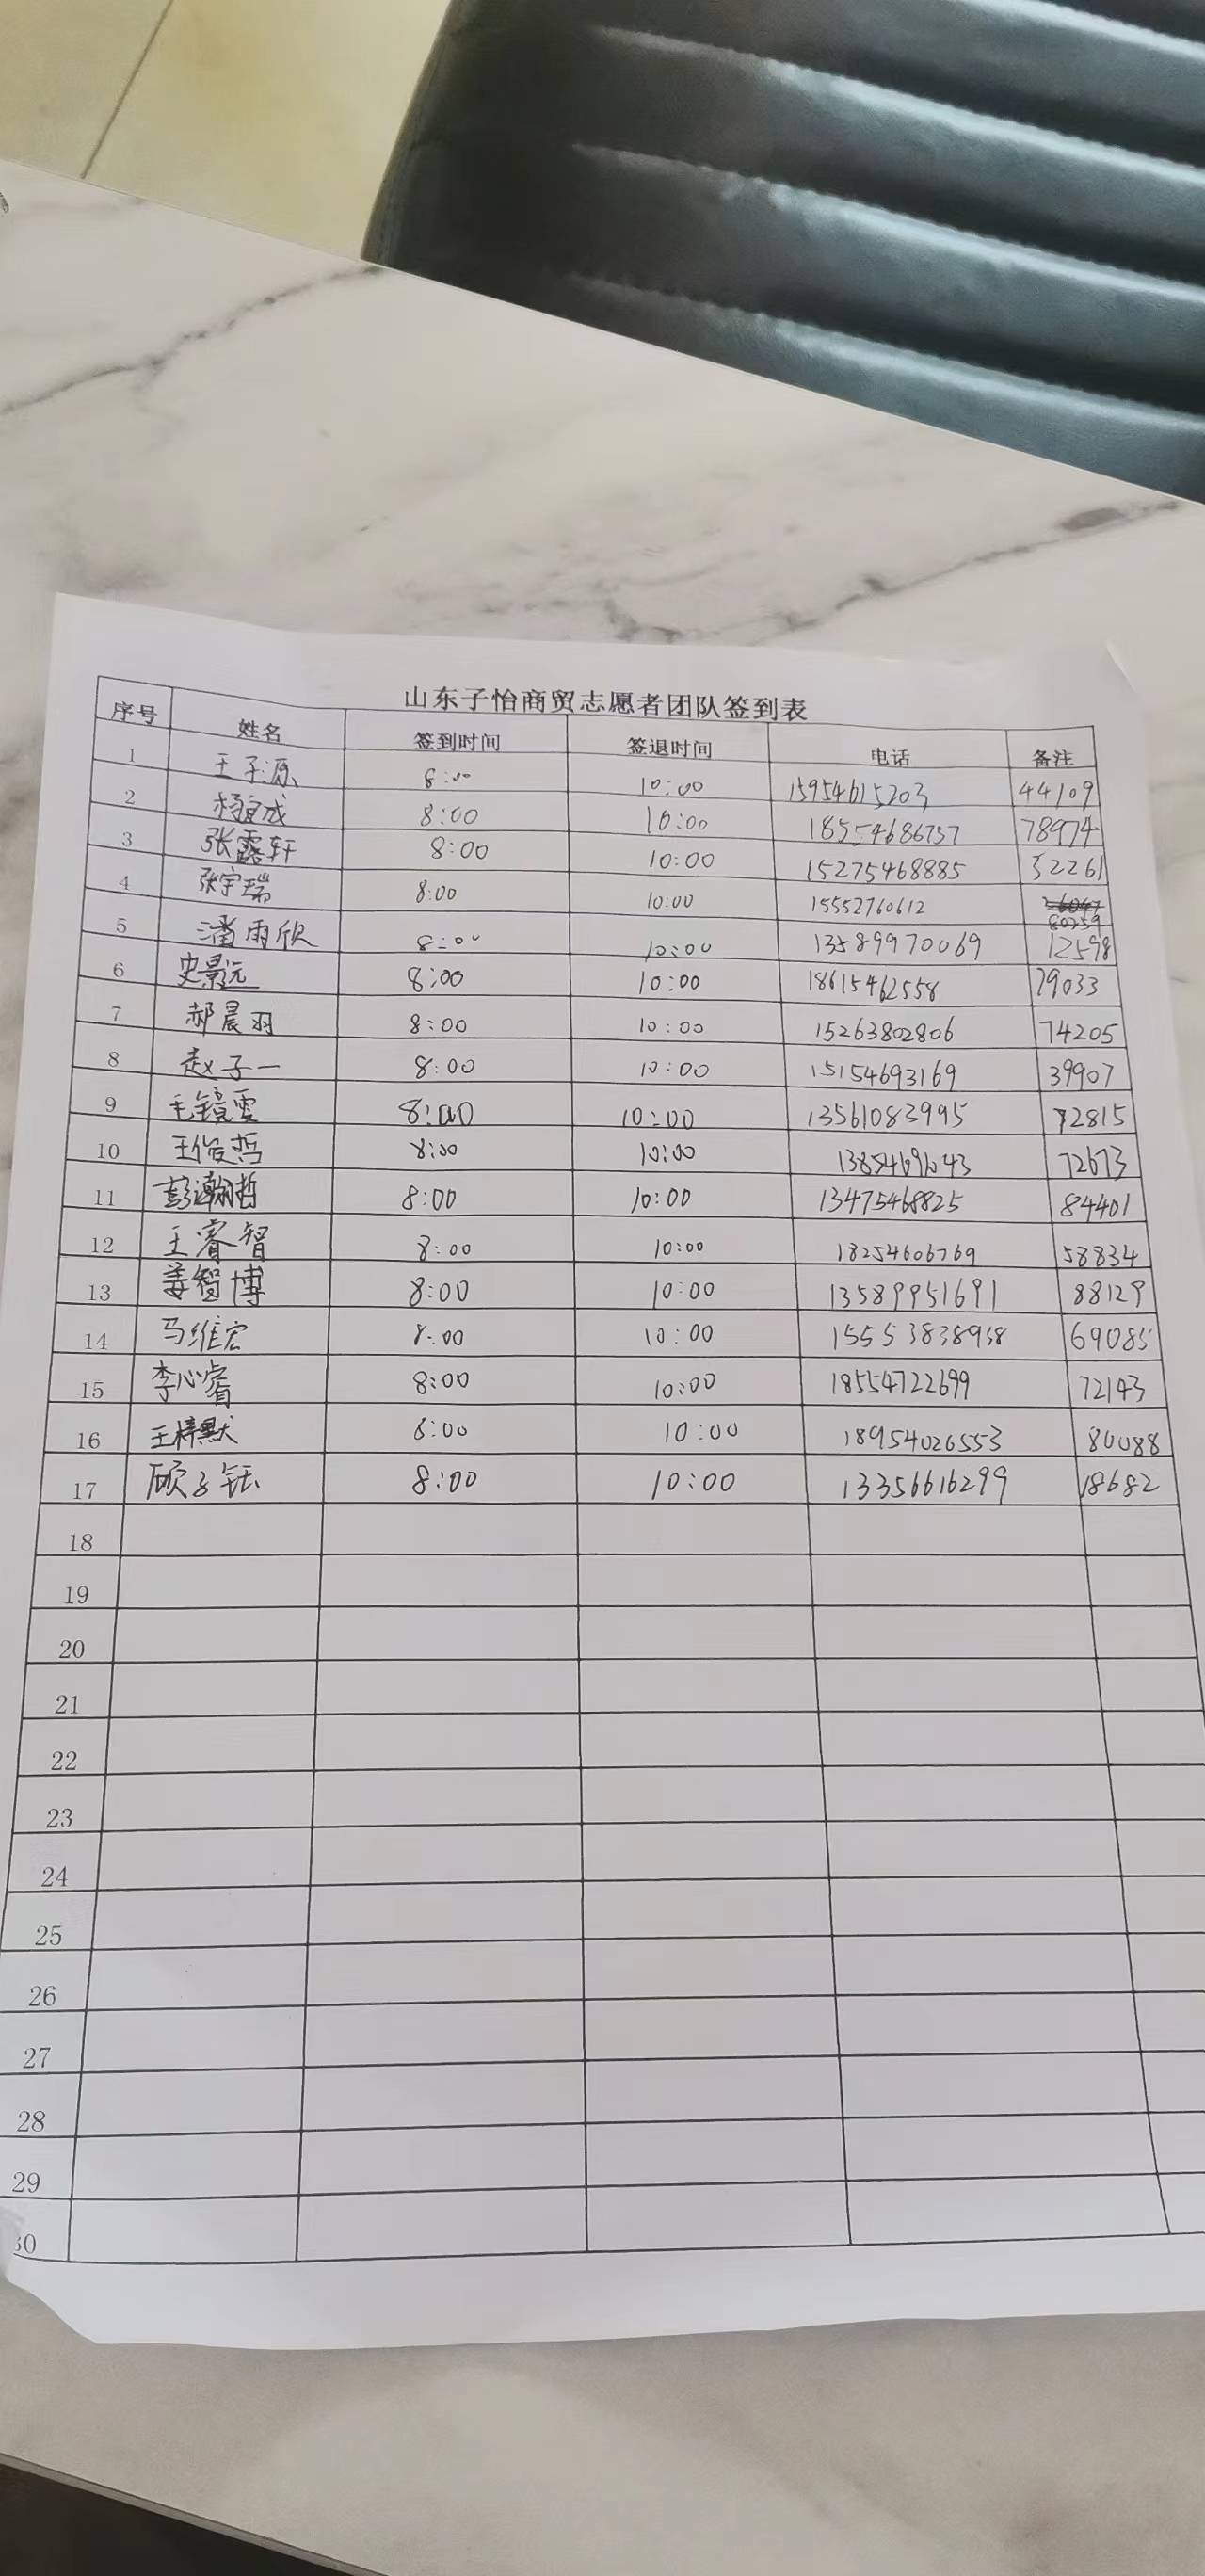 山东子怡商贸志愿者团队签到表
序号 姓名 签到时间 签退时间 电话 备注
1 王子源 8:00 10:00 15954615203 44109
2 8:00 10:00 18554686757 78974
3 张露轩 8:00 10:00 15275468885 52261
4 张宇瑞 8:00 10:00 15552760612 80259
5 潘雨欣 8:00 10:00 13589970069 12598
6 史景元 8:00 10:00 18615462558 79033
7 郝晨羽 8:00 10:00 15263802806 74205
8 赵子一 8:00 10:00 15154693169 39907
9 毛镜雯 8:00 10:00 13561083995 72815
10 王俊哲 8:00 10:00 72673
11 彭瀚哲 8:00 10:00 13475468825 84401
12 王睿智 8:00 10:00 18254606769 58834
13 姜智博 8:00 10:00 13589951691 88129
14 马维宏 8:00 10:00 15553838938 69085
15 李心睿 8:00 10:00 18554722699 72143
16 王梓默 8:00 10:00 18954026553 80088
17 顾子钰 8:00 10:00 13356616299 18682
18
19
20
21
22
23
24
25
26
27
28
29
30